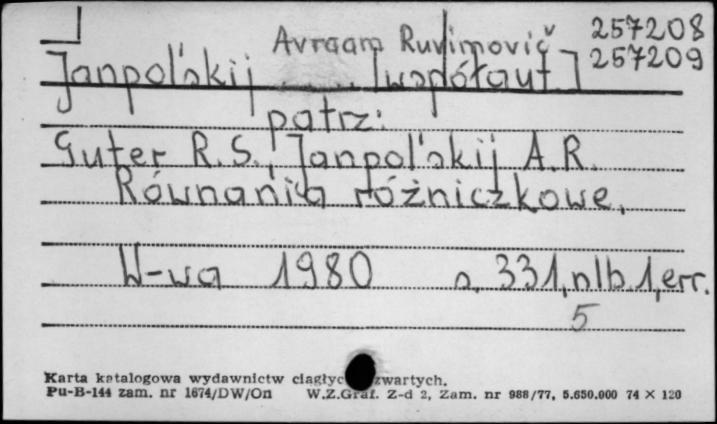 Avraam Ruvimovič 257208
Janpol'skij [współaut.] 257209
patrz:
Guter R.S., Janpol'skij A.R.
Równania różniczkowe.
W-wa 1980 s. 331, nlb. 1, err.
5
Karta katalogowa wydawnictw zwartych.
Pu-B-144 zam. nr 1674/DW/On W.Z.Graf. Z-d 2, Zam. nr 988/77, 5.650.000 74 X 120